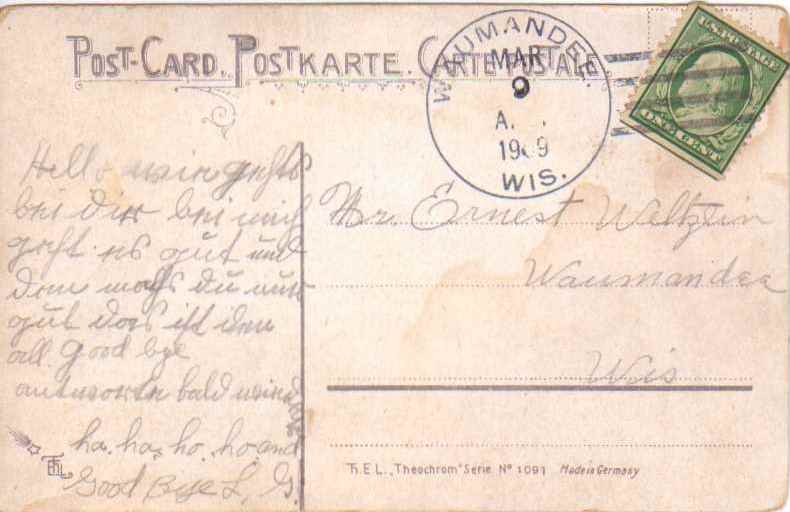 POST-CARD. POSTKARTE. CARTE POSTALE.
WAUMANDEE.
MAR
9
A.
1909
WIS.
U.S. POSTAGE
ONE CENT
Hello wie gehts
bei dir bei mich
geht es gut und
du nur
gut das ist den
all. Good bye
antworte bald wieder
ha. ha. ho. ho and
Good Bye L. G.
Mr. Ernest Weltzien
Waumandee
Wis
Th. E. L. „Theochrom" Serie No 1091 Made in Germany